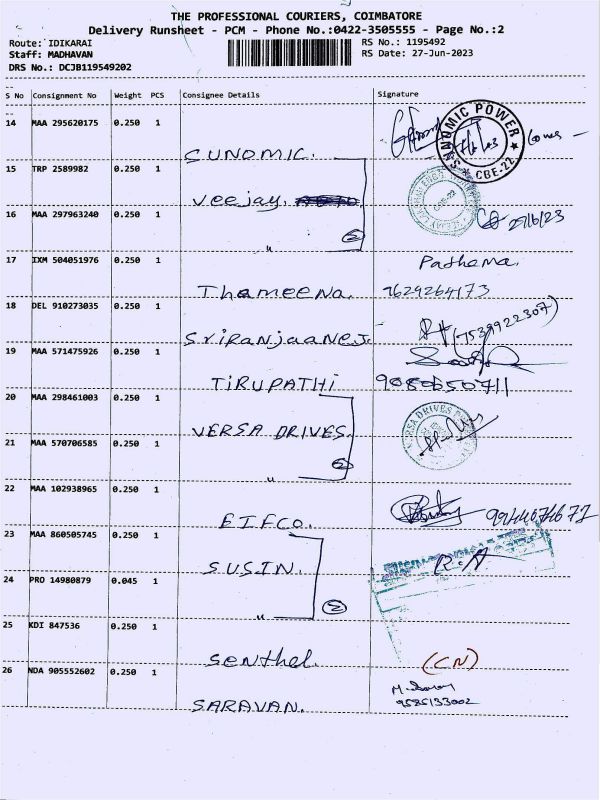 THE PROFESSIONAL COURIERS, COIMBATORE
Delivery Runsheet - PCM - Phone No.:0422-3505555 - Page No.:2
Route: IDIKARAI
RS No.: 1195492
Staff: MADHAVAN
RS Date: 27-Jun-2023
DRS No.: DCJB119549202
S No Consignment No Weight PCS Consignee Details Signature
14 MAA 295620175 0.250 1
SUNOMIC POWER
CBE-22
SUNOMIC.
15 TRP 2589982 0.250 1
Veejay.
16 MAA 297963240 0.250 1
27/6/23
" 2
17 IXM 504051976 0.250 1
Pathema.
Thameena. 7629264173
18 DEL 910273035 0.250 1
(7539922307)
Sriranjaanees.
19 MAA 571475926 0.250 1
TIRUPATHI
20 MAA 298461003 0.250 1
VERSA DRIVES
VERSA DRIVES.
21 MAA 570706585 0.250 1
" 2
22 MAA 102938965 0.250 1
EIFCO.
23 MAA 860505745 0.250 1
SUSIN. R.A
24 PRO 14980879 0.045 1
" 2
25 KDI 847536 0.250 1
Senthel. (CN)
26 NDA 905552602 0.250 1
SARAVAN. 9585133002